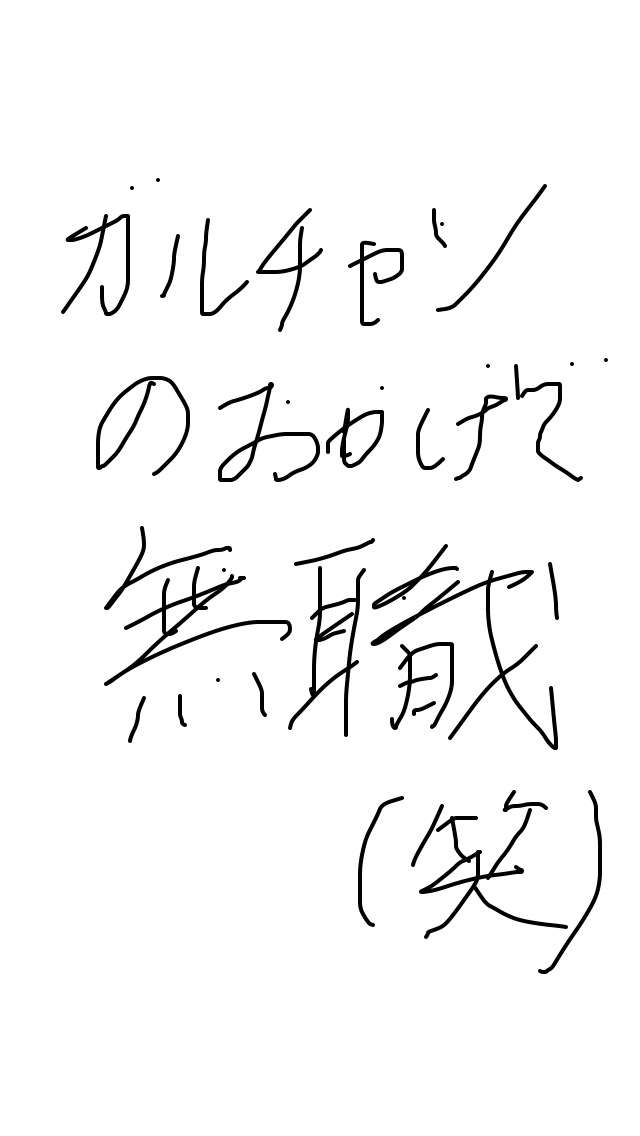 ガルチャン
のおかげで
無職
(笑)